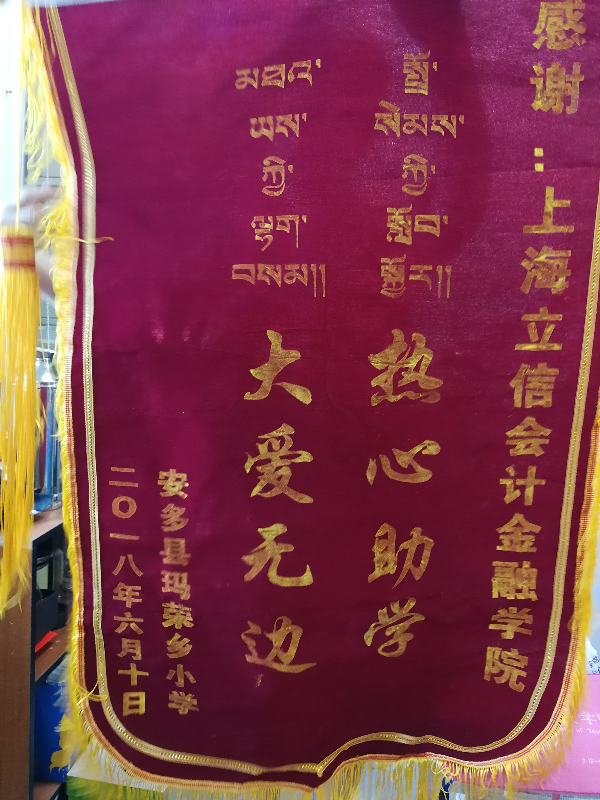 感谢：上海立信会计金融学院
སྤྲོ་
སེམས་
ཀྱི་
སློབ་
སྐྱོར།།
热心助学
མཐའ་
ཡས་
ཀྱི་
ལྷག་
བསམ།།
大爱无边
安多县玛荣乡小学
二〇一八年六月十日